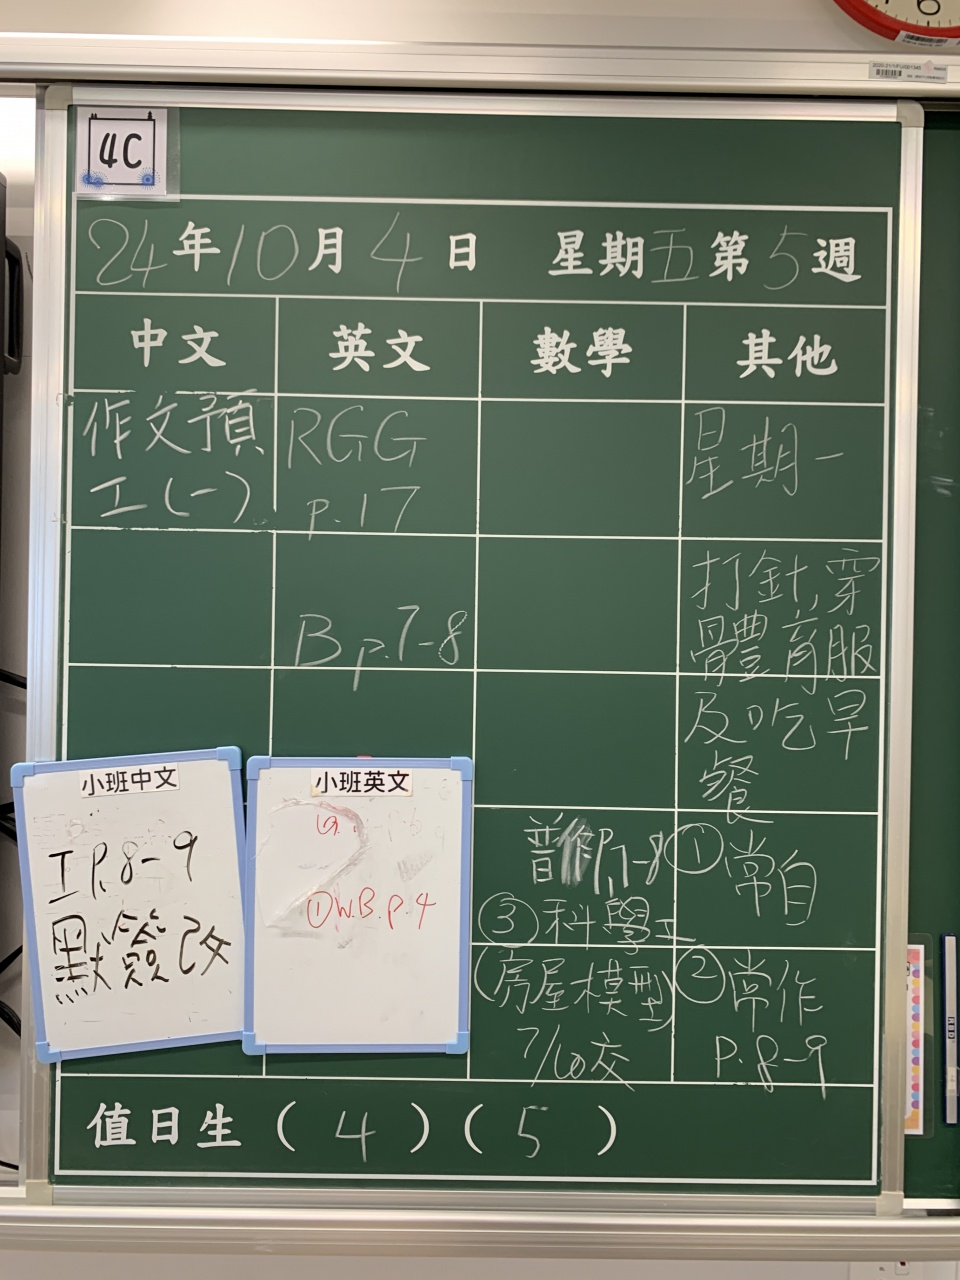 4C
24年10月4日 星期五第5週
中文 英文 數學 其他
作文預
工(一)
RGG
p.17
B p.7-8
星期一
打針,穿
體育服
及吃早
餐
小班中文
工P.8-9
默簽改
小班英文
①W.B.p.4
普作P.7-8
③科學工
(房屋模型)
7/10交
①常自
②常作
P.8-9
值日生(4)(5)